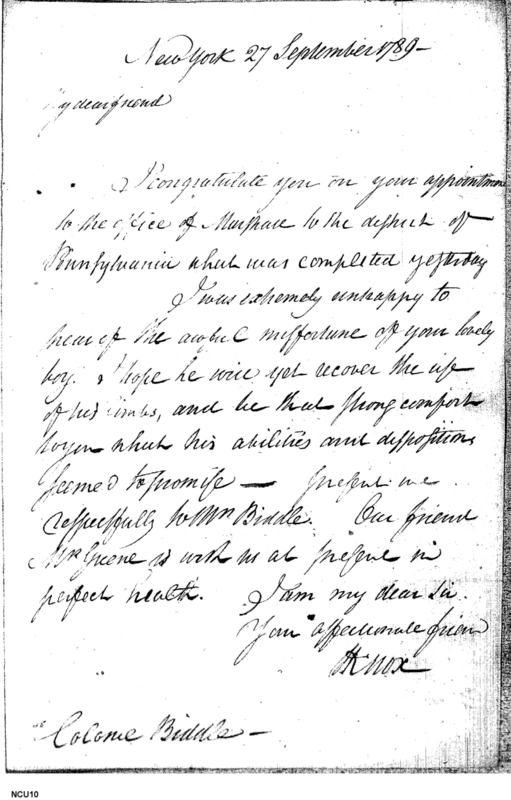 New York 27 September 1789 —
My dear friend
I congratulate you on your appointment
to the office of Marshall to the district of
Pennsylvania which was completed yesterday
I was extremely unhappy to
hear of the awful misfortune of your lovely
boy. I hope he will yet recover the use
of his limbs, and be that strong comfort
to you which his abilities and dispositions
seemed to promise — present me
respectfully to Mrs Biddle. Our friend
Mrs Greene is with us at present in
perfect health. I am my dear Sir.
Your affectionate friend
HKnox
Colonel Biddle —
NCU10